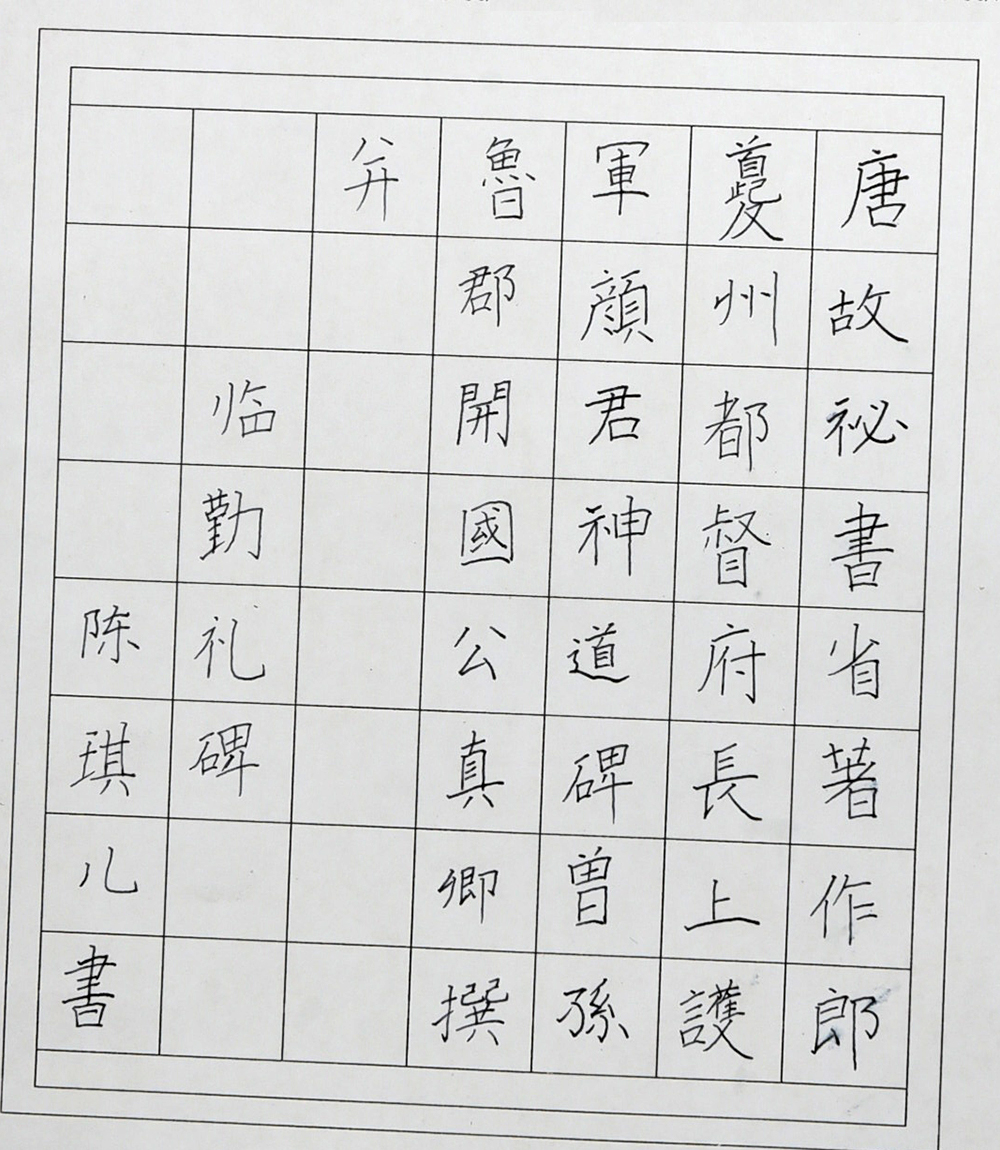 唐故祕書省著作郎
夔州都督府長上護
軍顏君神道碑曽孫
魯郡開國公真卿撰
并
临勤礼碑
陈琪儿書